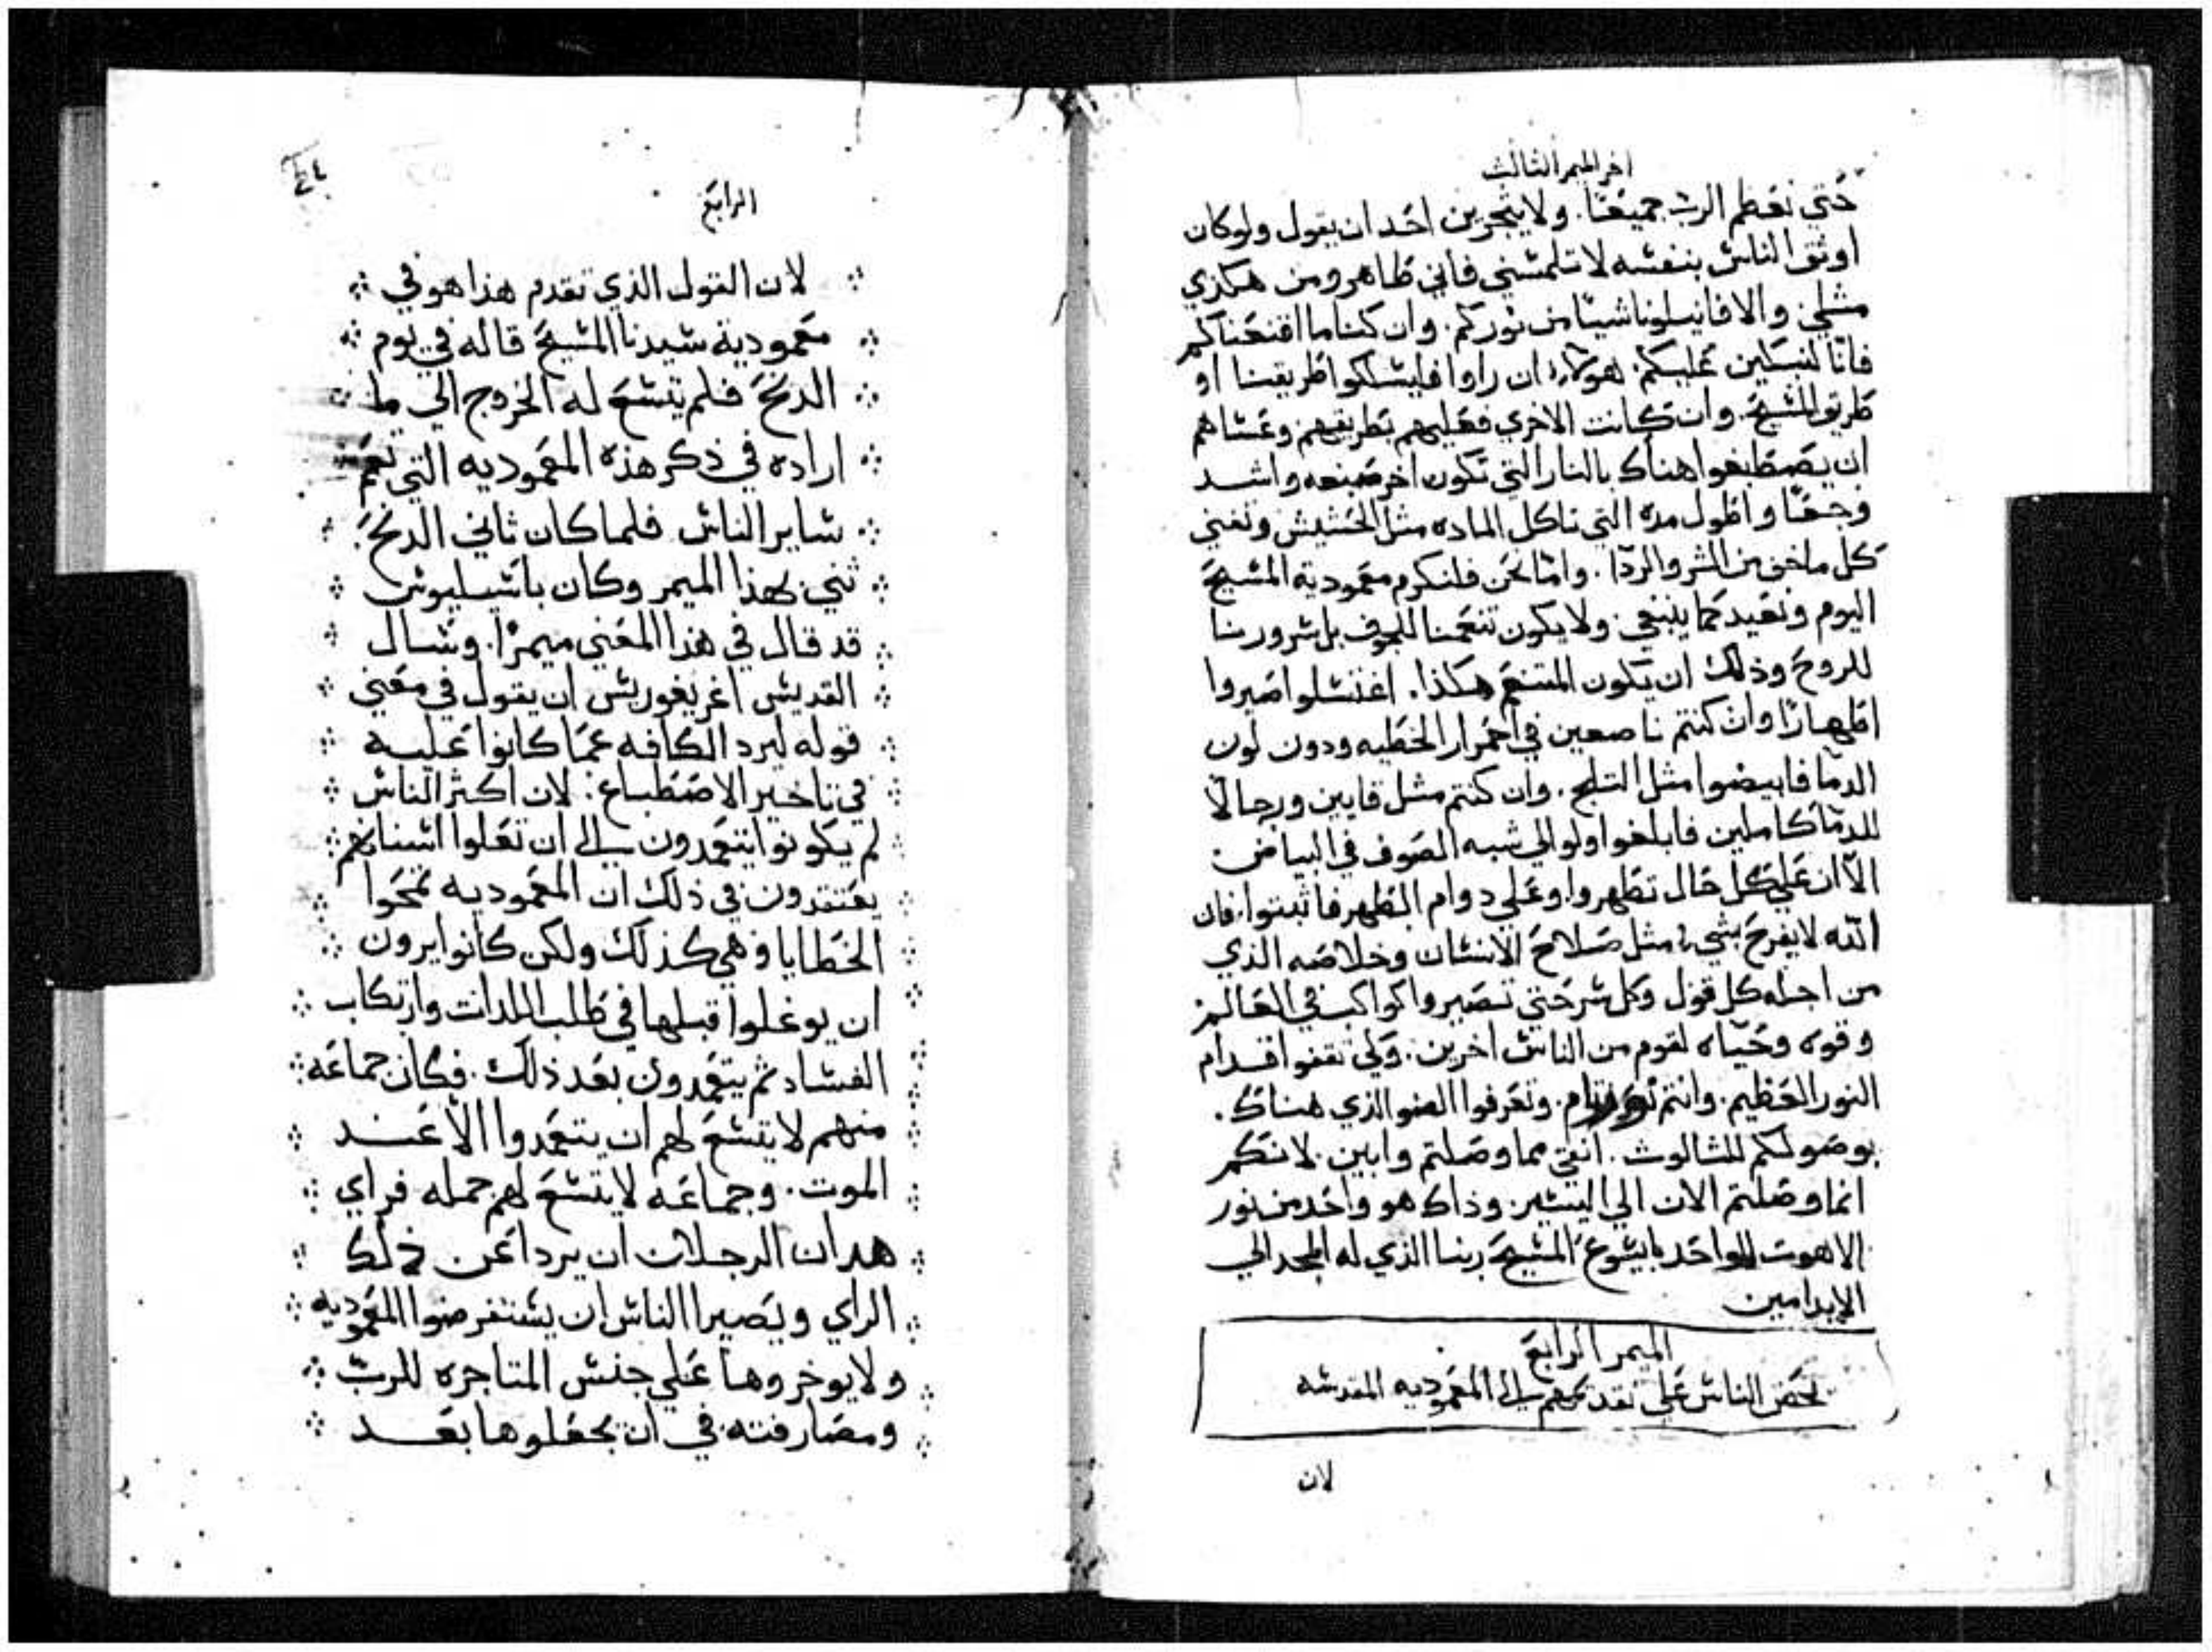 اخر الميمر الثالث
حتي نعظم الرب جميعنا. ولا يتجرين احد ان يقول ولو كان
اوثق الناس بنفسه لا تلمسني فاني طاهر ومن هكذي
مثلي والا فانيلونا شيا من نوركم. وان كنا ما اقنعناكم
فانا لنبكين عليكم. هولاء ان راوا فليسلكوا طريقنا او
طريق المسيح. وان كانت الاخري فعليهم بطريقهم وعساهم
ان يصطبغوا هناك بالنار التي تكون اخر صبغه واشد
وجعا واطول مده التي تاكل الماده مثل الحشيش وتفني
كل ما خف من الشر والردا. واما نحن فلنكرم معمودية المسيح
اليوم ونعيد كما ينبغي ولا يكون تنعمنا للجوف بل سرورنا
للروح وذلك ان يكون التنعم هكذا. اغتسلوا صيروا
اطهارا وان كنتم ناصعين في احمرار الخطيه ودون لون
الدما فابيضوا مثل الثلج. وان كنتم مثل قايين ورجالا
للدما كاملين فابلغوا ولو الي شبه الصوف في البياض
الا ان علي كل حال تطهروا وعلي دوام التطهر فاثبتوا. فان
الله لا يفرح بشيء مثل صلاح الانسان وخلاصه الذي
من اجله كل قول وكل سر حتي تصيروا كواكب في العالم
وقوه وحياه لقوم من الناس اخرين. ولكي تقفوا قدام
النور العظيم. وانتم نور تام. وتعرفوا الضو الذي هناك.
بوصولكم للثالوث. انقي مما وصلتم وابين. لانكم
انما وصلتم الان الي اليسير. وذاك هو واحد من نور
الاهوت الواحد بايسوع المسيح ربنا الذي له المجد الي
الابد امين
الميمر الرابع
يحض الناس علي تقدمهم الي المعموديه المقدسه
لان
٢٤
الرابع
لان القول الذي تقدم هذا هو في
معمودية سيدنا المسيح قاله في يوم
الدنح فلم يتسع له الخروج الي ما
اراده في ذكر هذه المعموديه التي تعم
ساير الناس فلما كان ثاني الدنح
ثني بهذا الميمر وكان باسيليوس
قد قال في هذا المعني ميمرا. وسال
القديس اغريغوريس ان يقول في معني
قوله ليرد الكافه عما كانوا عليه
في تاخير الاصطباغ: لان اكثر الناس
لم يكونوا يتعمدون الي ان تعلوا اسنانهم
يعتقدون في ذلك ان المعموديه تمحوا
الخطايا وهي كذلك ولكن كانوا يرون
ان يوغلوا قبلها في طلب اللدات وارتكاب
الفساد ثم يتعمدون بعد ذلك. فكان جماعه
منهم لا يتسع لهم ان يتعمدوا الا عند
الموت. وجماعه لا يتسع لهم جمله فراي
هدان الرجلان ان يردا عن ذلك
الراي ويصيرا الناس ان يستفرضوا المعموديه
ولا يوخروها علي جنس المتاجره للرب
ومصارفته في ان يجعلوها بعد